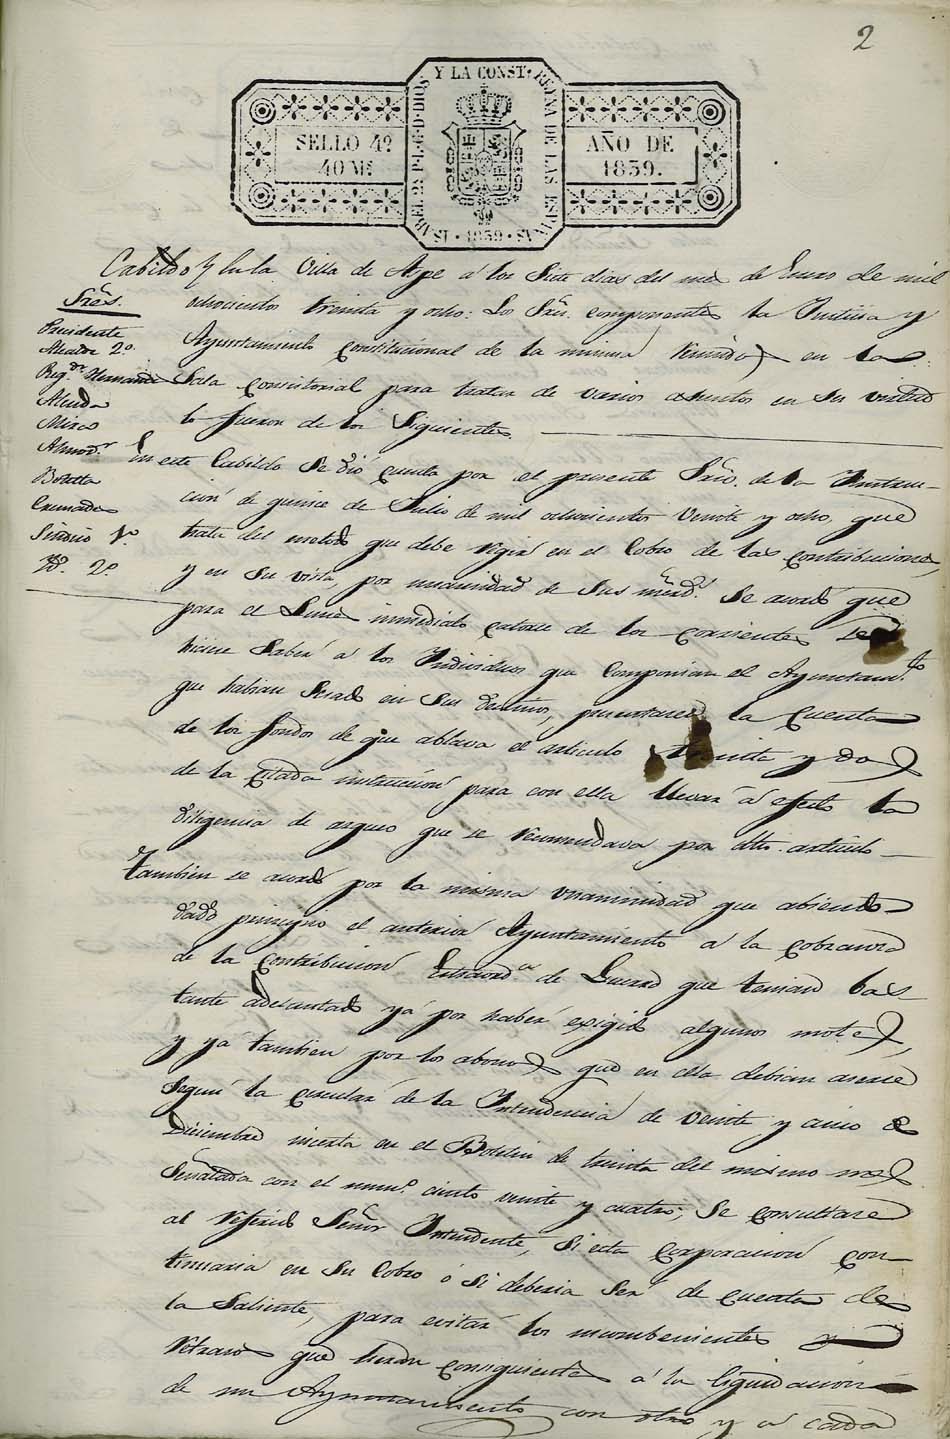 2
Y LA CONST. REYNA DE LAS ESPAÑAS
ISABEL 2ª P.L.G.D. DIOS
SELLO 4º
40 Ms
AÑO DE
1839.
1839
Cabildo En la Villa de Aspe á los Siete dias del mes de Enero de mil
Sres.
ochocientos treinta y ocho: Los Sres. componentes la Justicia y
Presidente
Alcalde 2º
Ayuntamiento Constitucional de la misma reunidos en la
Regor. Hernandez
Sala Consistorial para tratar de varios asuntos en su virtud
Alcida
Mira
lo fueron de los Siguientes.
Almodr.
Botella
Cremades
Sindico 1º
Yd. 2º
En este Cabildo se dió cuenta por el presente Srio. de la Ynstruc-
cion de quince de Julio de mil ochocientos veinte y ocho, que
trata del metodo que debe regir en el Cobro de las contribuciones,
y en su vista, por unanimidad de Sus merds. Se acordó que
para el Lunes inmediato catorce de los corrientes se
hiciese Saber á los Yndividuos que componian el Ayuntamto.
que habian Sesado en Sus destinos, presentasen la Cuenta
de los fondos de que ablava el articulo treinta y dos
de la citada instruccion para con ella llevar á efecto la
diligencia de arqueo que se recomendava por dho. articulo
Tambien se acordó por la misma unanimidad que abiendo
dado principio el anterior Ayuntamiento á la cobranza
de la Contribucion Estraorda. de Guerra que tenian bas-
tante adelantado yá por haber exigido algunos motes,
y yá tambien por los abonos que en ella debian acerse
Segun la circular de la Yntendencia de veinte y cinco de
Diciembre incerta en el Boletin de treinta del mismo mes
Señalada con el numº. ciento veinte y cuatro; Se consultase
al referido Señor Yntendente, Si esta Corporacion con-
tinuaria en Su Cobro ó Si deberia Ser de cuenta de
la Saliente, para evitar los inconbenientes y
retrasos que heran consiguientes á la liquidacion
de un Ayuntamiento con otro y á cada